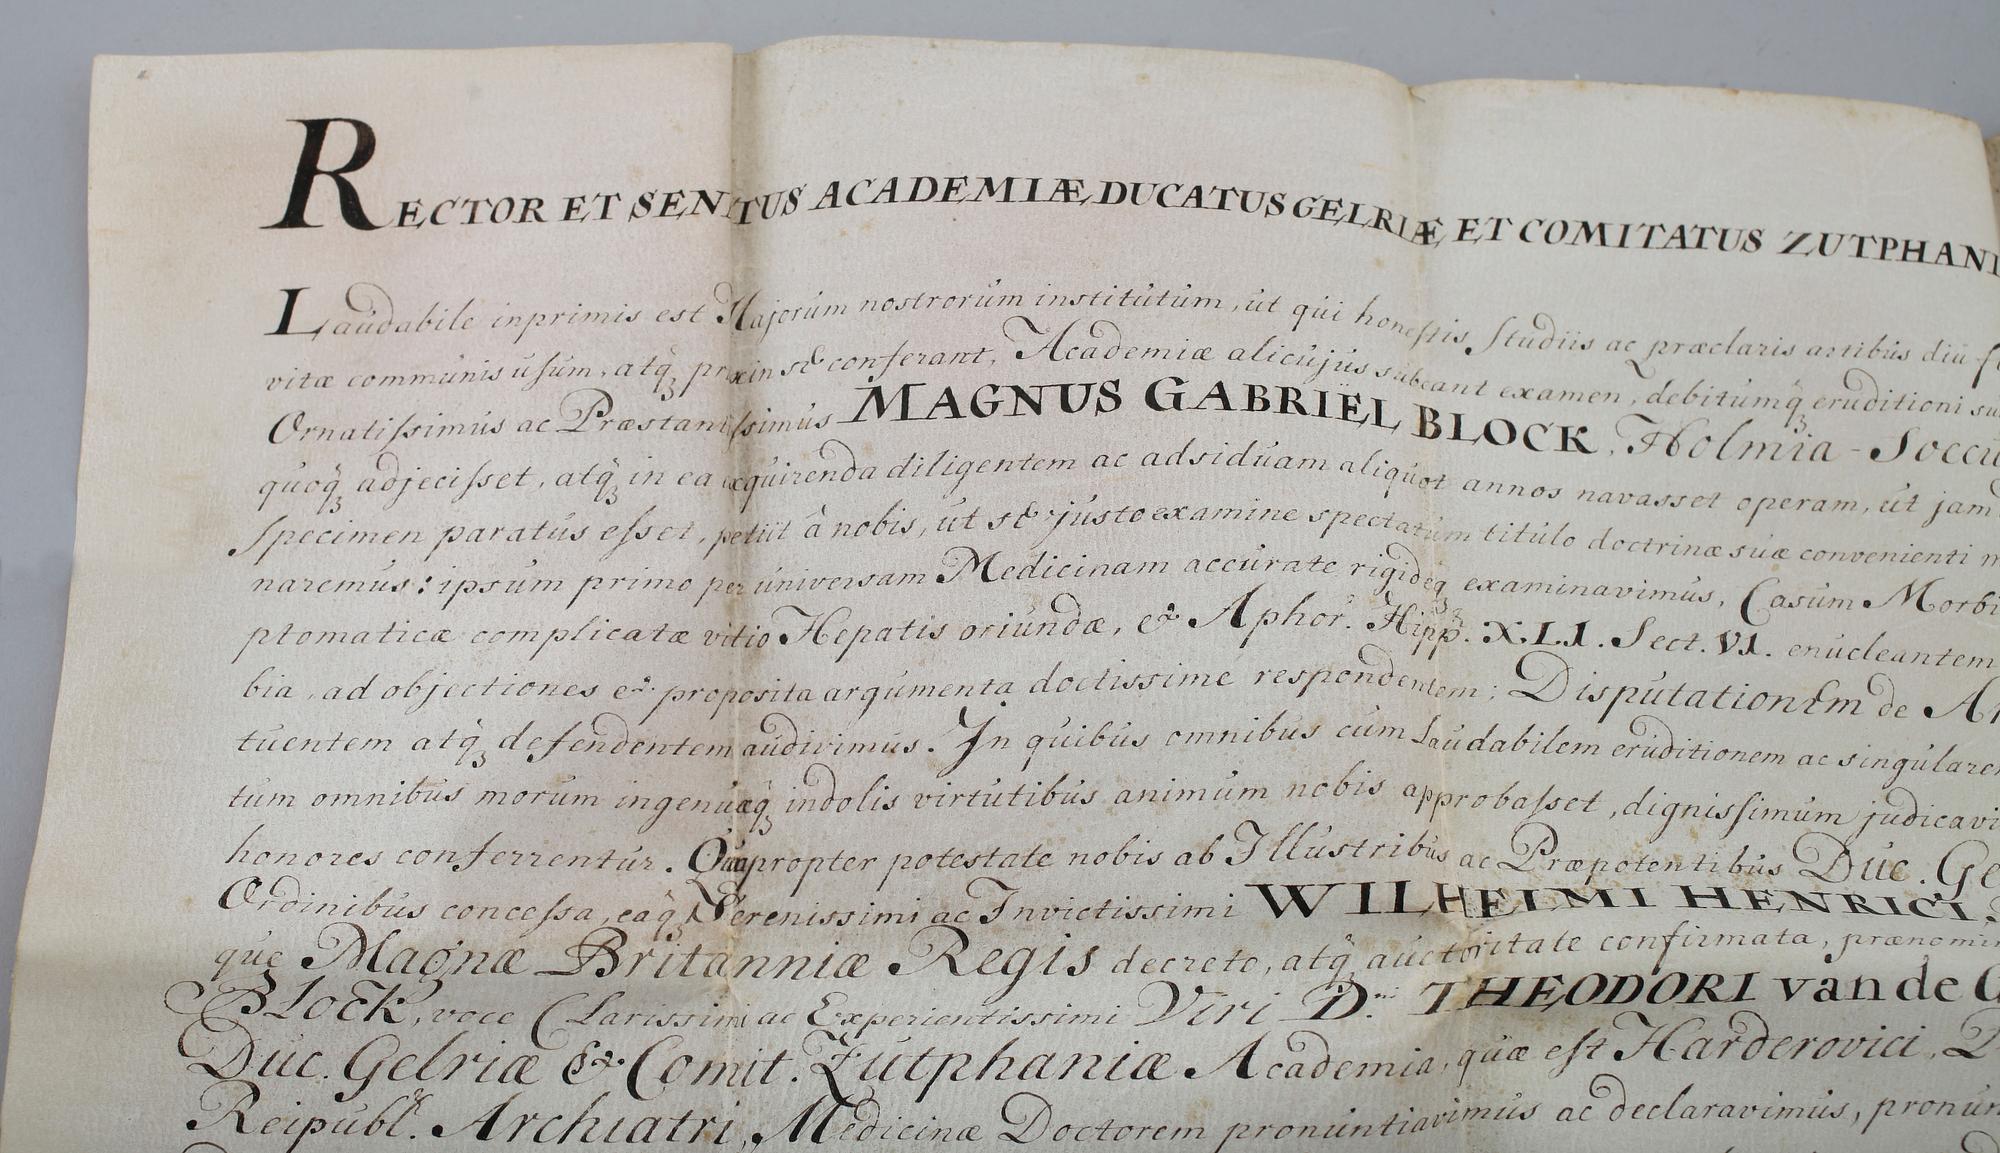 RECTOR ET SENATUS ACADEMIÆ DUCATUS GELRIÆ ET COMITATUS ZUTPHANI
Laudabile inprimis est Majorum nostrorum institutum, ut qui honestis Studiis ac præclaris artibus diu
vitæ communis usum, atq̃ conferant, Academiæ alicujus subeant examen, debitumq̃ eruditioni su
Ornatissimus ac Præstantissimus MAGNUS GABRIËL BLOCK, Holmia-Soccu
quoq̃ adjecisset, atq̃ in ea exquirenda diligentem ac adsiduam aliquot annos navasset operam, ut jam
specimen paratus esset, petiit â nobis, ut se justo examine spectatum titulo doctrinæ suæ convenienti
naremus: ipsum primo per universam Medicinam accurate rigideq̃ examinavimus, Casum Morbi
ptomaticæ complicatæ vitio Hepatis oriundæ, & Aphor. Hipp. XLI. Sect. VI. enucleantem
bia, ad objectiones & proposita argumenta doctissime respondentem; Disputationem de A
tuentem atq̃ defendentem audivimus. In quibus omnibus cum laudabilem eruditionem ac singularem
tum omnibus morum ingenuæq̃ indolis virtutibus animum nobis approbasset, dignissimum judicavi
honores conferrentur. Quapropter potestate nobis ab Illustribus ac Præpotentibus Duc. Ge
Ordinibus concessa, eaq̃ Serenissimi ac Invictissimi WILHELMI HENRICI,
que Magnæ Britanniæ Regis decreto, atq̃ auctoritate confirmata, prænomin
BLOCK, voce Clarissimi ac Experientissimi Viri D.ni THEODORI van de G
Duc. Gelriæ & Comit. Zutphaniæ Academia, quæ est Harderovici,
Reipubl. Archiatri, Medicinæ Doctorem pronuntiavimus ac declaravimus, pronun